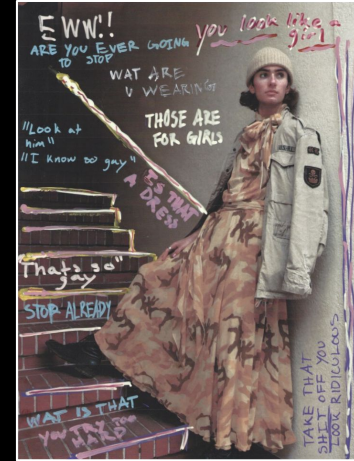 EWW!!
ARE YOU EVER GOING
TO STOP
you look like a
girl
WAT ARE
U WEARING
THOSE ARE
FOR GIRLS
"Look at
him"
"I know so gay"
IS THAT
A DRESS
Thats so"
gay
STOP ALREADY
WAT IS THAT
YOU TRY TOO
HARD
TAKE THAT
SHIT OFF YOU
LOOK RIDICULOUS